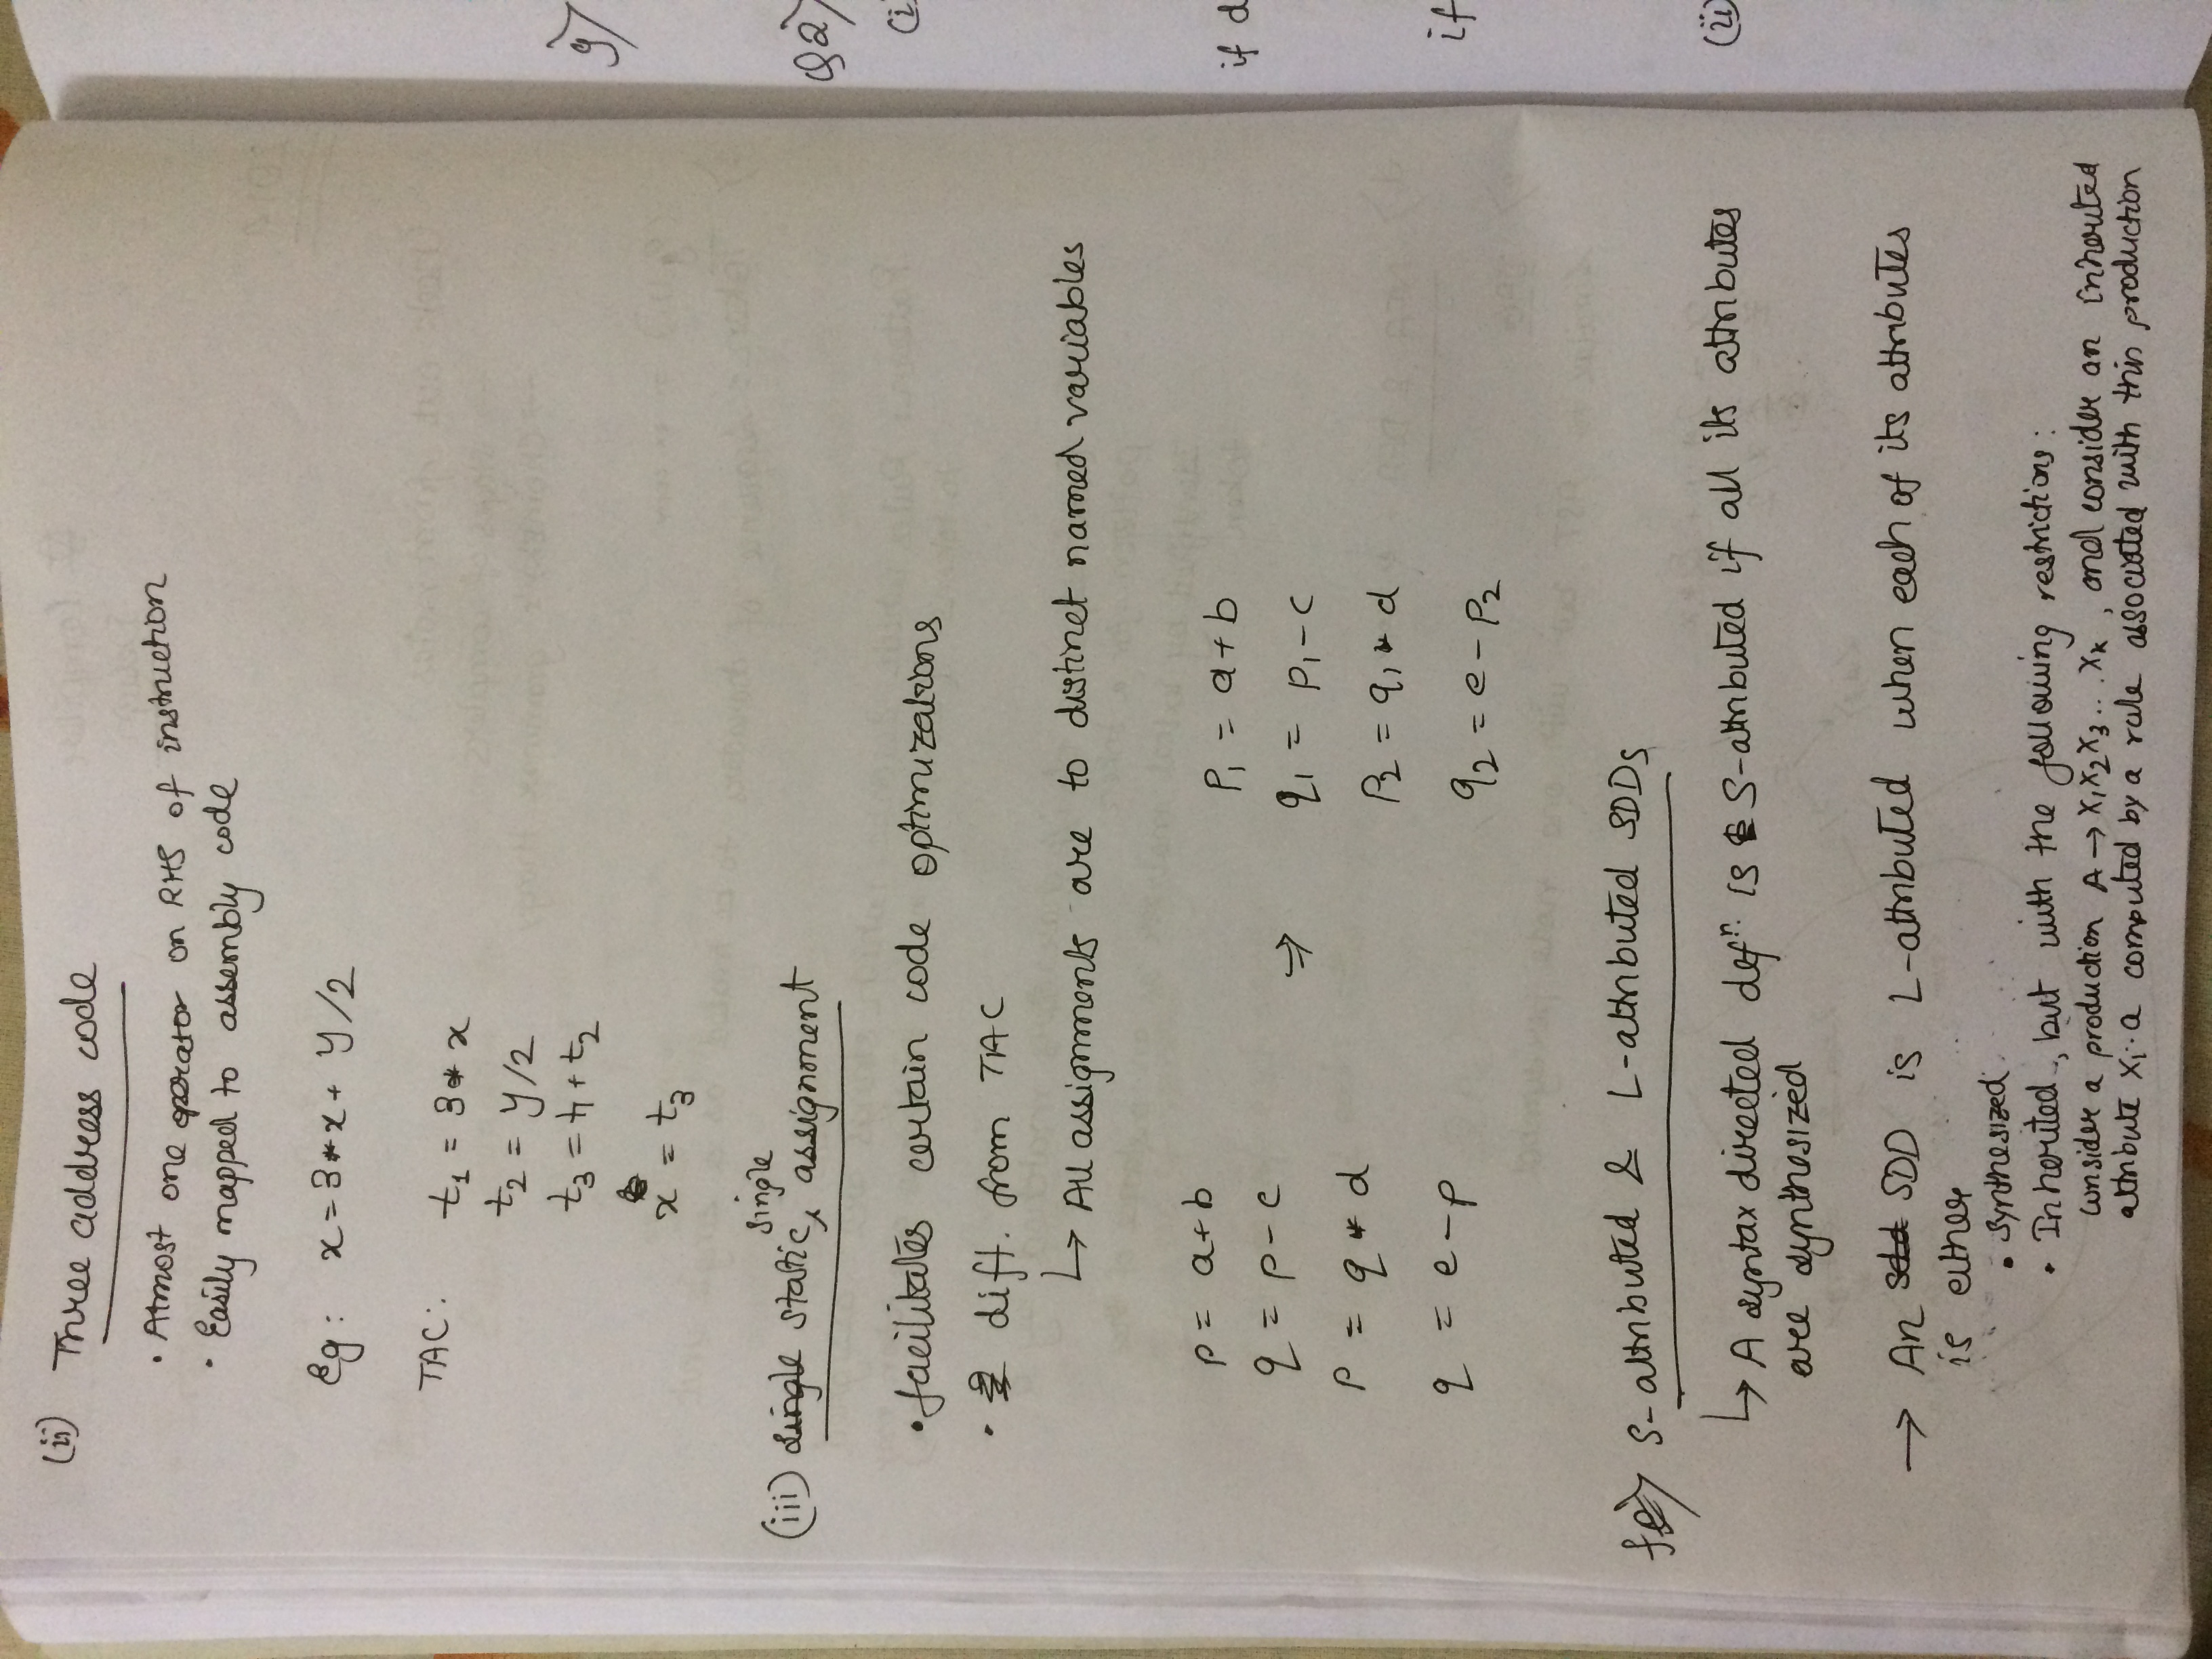 (ii) Three address code
• Atmost one operator on RHS of instruction
• Easily mapped to assembly code
Eg: x = 3*x + y/2
TAC: t1 = 3*x
t2 = y/2
t3 = t1 + t2
x = t3
single
(iii) single static, assignment
• facilitates certain code optimizations
• diff. from TAC
↳ All assignments are to distinct named variables
p = a+b
P1 = a+b
q = p-c
⇒
q1 = p1-c
P = q * d
P2 = q1 * d
q = e-p
q2 = e-P2
f) S-attributed & L-attributed SDDs
↳ A syntax directed defn. is S-attributed if all its attributes
are synthesized
→ An sdd SDD is L-attributed when each of its attributes
is either
• synthesized
• Inherited, but with the following restrictions:
consider a production A → X1X2X3...Xk, and consider an inherited
attribute Xi.a computed by a rule associated with this production
g)
Q2)
(i
if d
if
(ii)